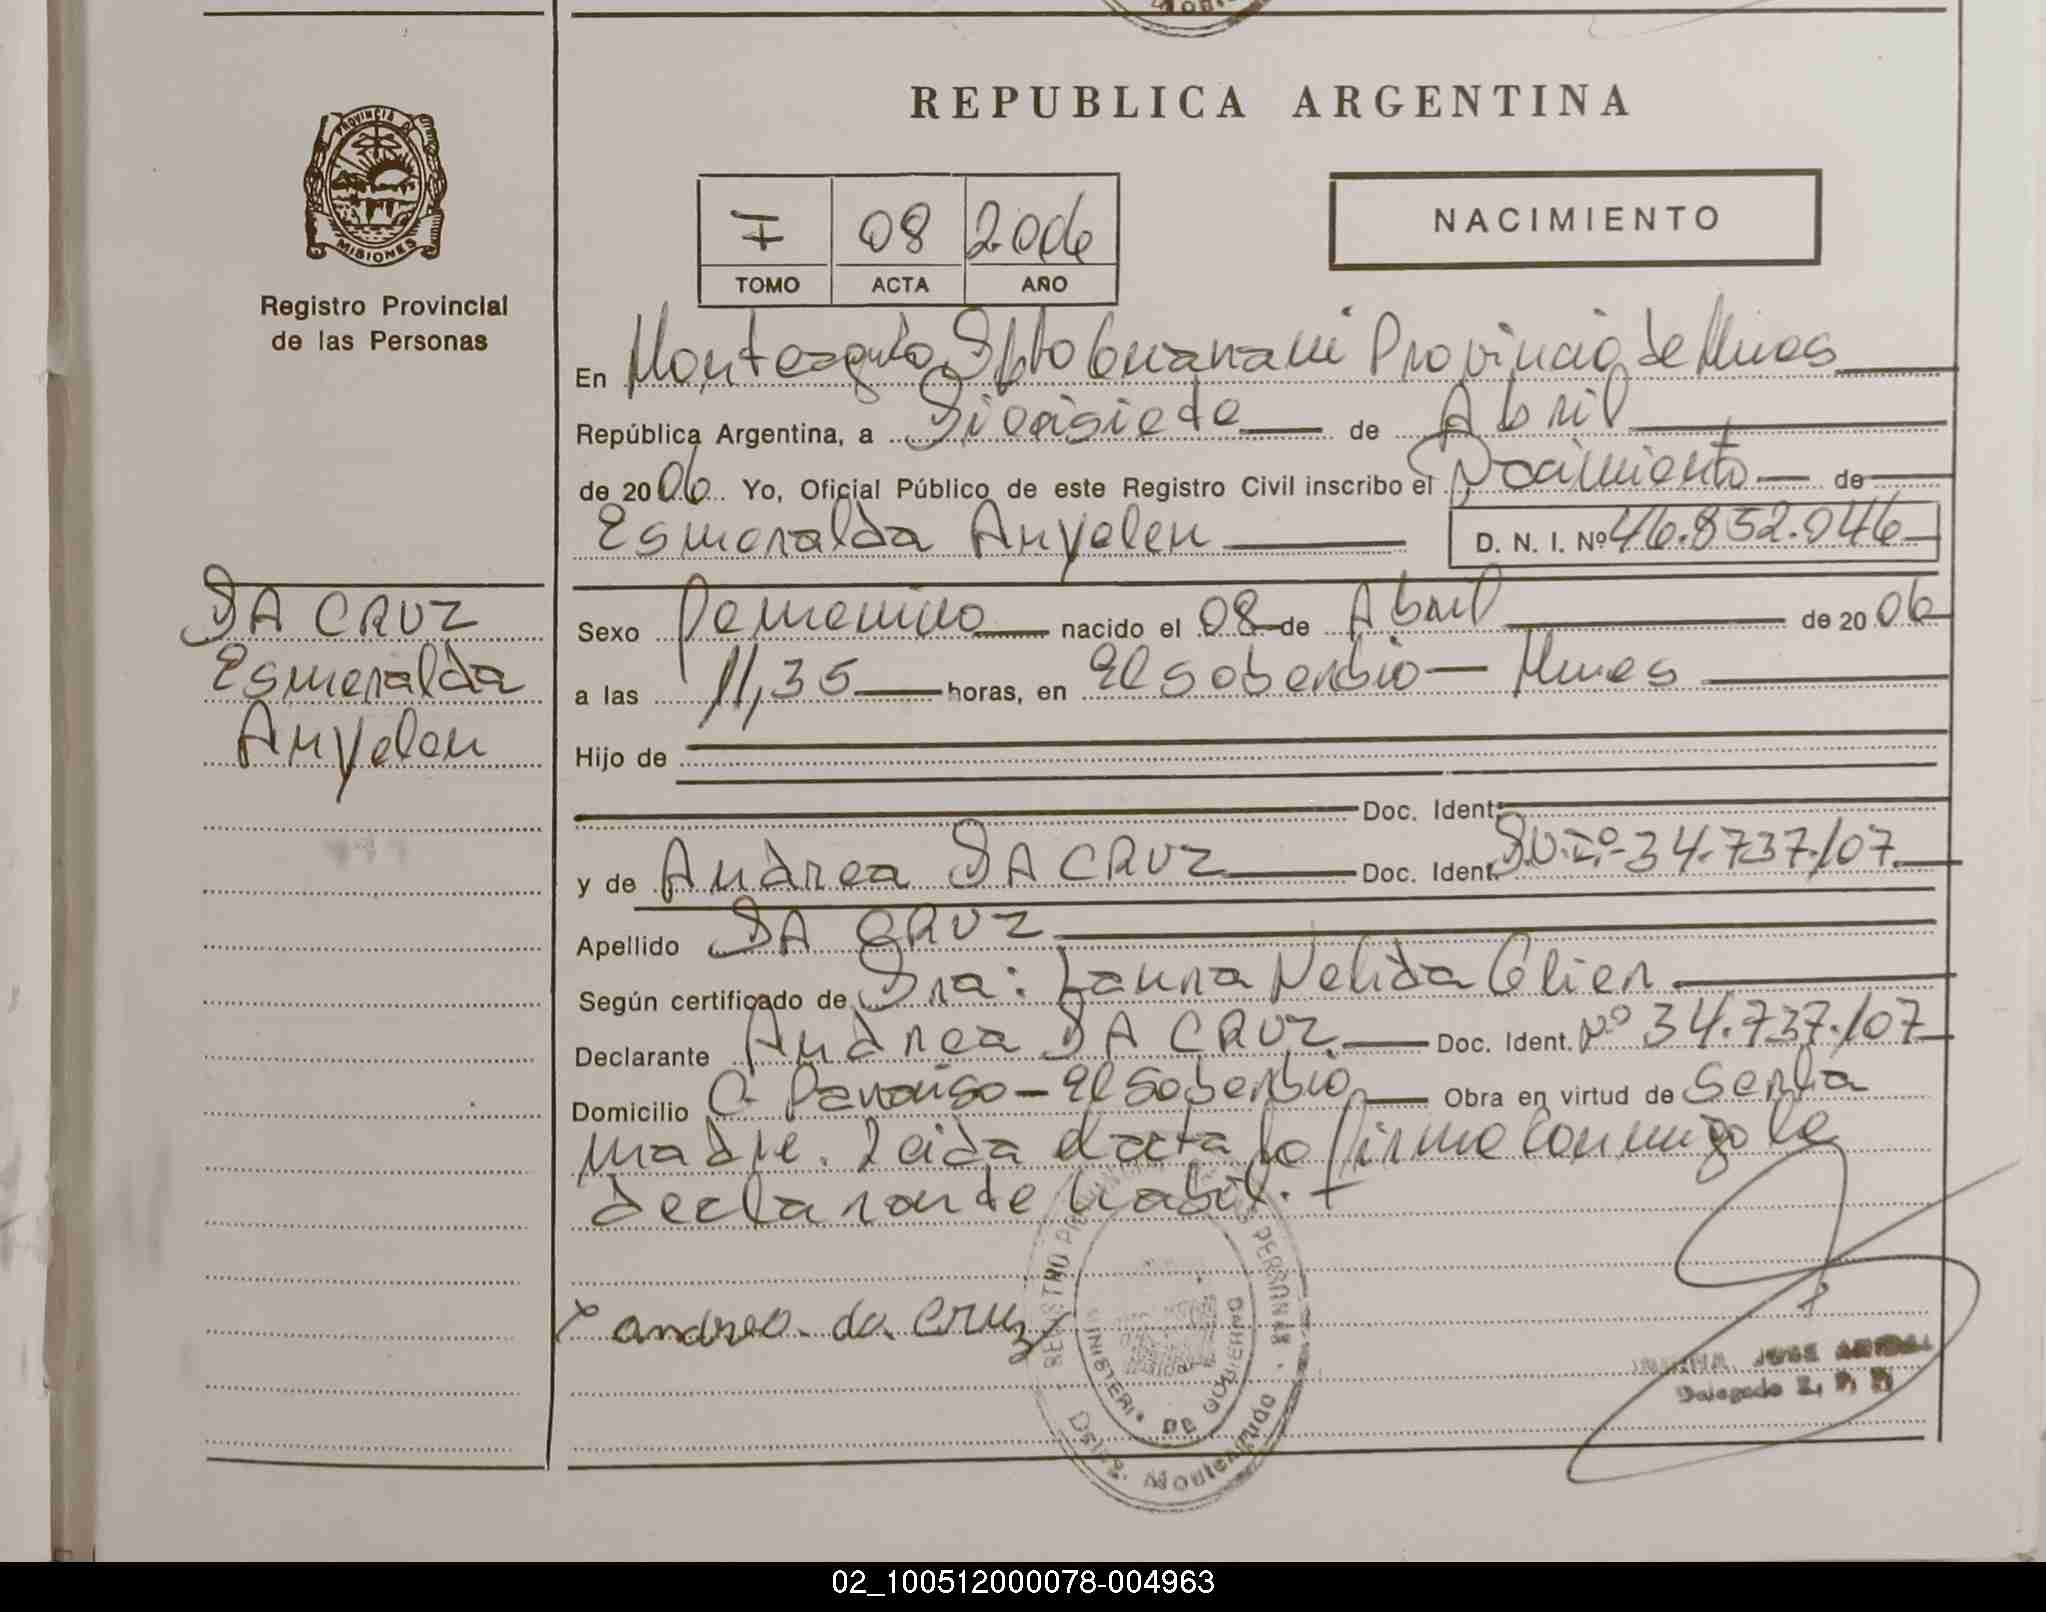 REPUBLICA ARGENTINA
PROVINCIA D
MISIONES
Registro Provincial
de las Personas
7 08 2006
TOMO ACTA AÑO
NACIMIENTO
En Monteagudo Dpto Guarani Provincia de Mnes
República Argentina, a Diecisiete de Abril
de 2006 Yo, Oficial Público de este Registro Civil inscribo el Nacimiento de
Esmeralda Anyelen D. N. I. Nº 46.852.046
DA CRUZ
Esmeralda
Anyelen
Sexo Femenino nacido el 08 de Abril de 2006
a las 11,35 horas, en El Soberbio - Mnes
Hijo de
Doc. Ident.
y de Andrea DA CRUZ Doc. Ident. D.N.I. Nº 34.737.107
Apellido DA CRUZ
Según certificado de Dra: Laura Nelida
Declarante Andrea DA CRUZ Doc. Ident. Nº 34.737.107
Domicilio Cº Paraiso - El Soberbio Obra en virtud de Ser la
madre. Leida el acta la firma conmigo la
declarante habil.
x andrea da cruz
REGISTRO PERSONAS
MINISTERIO DE GOBIERNO
Deleg. Monteagudo
JOSE
Delegado R. P. P.
02_100512000078-004963